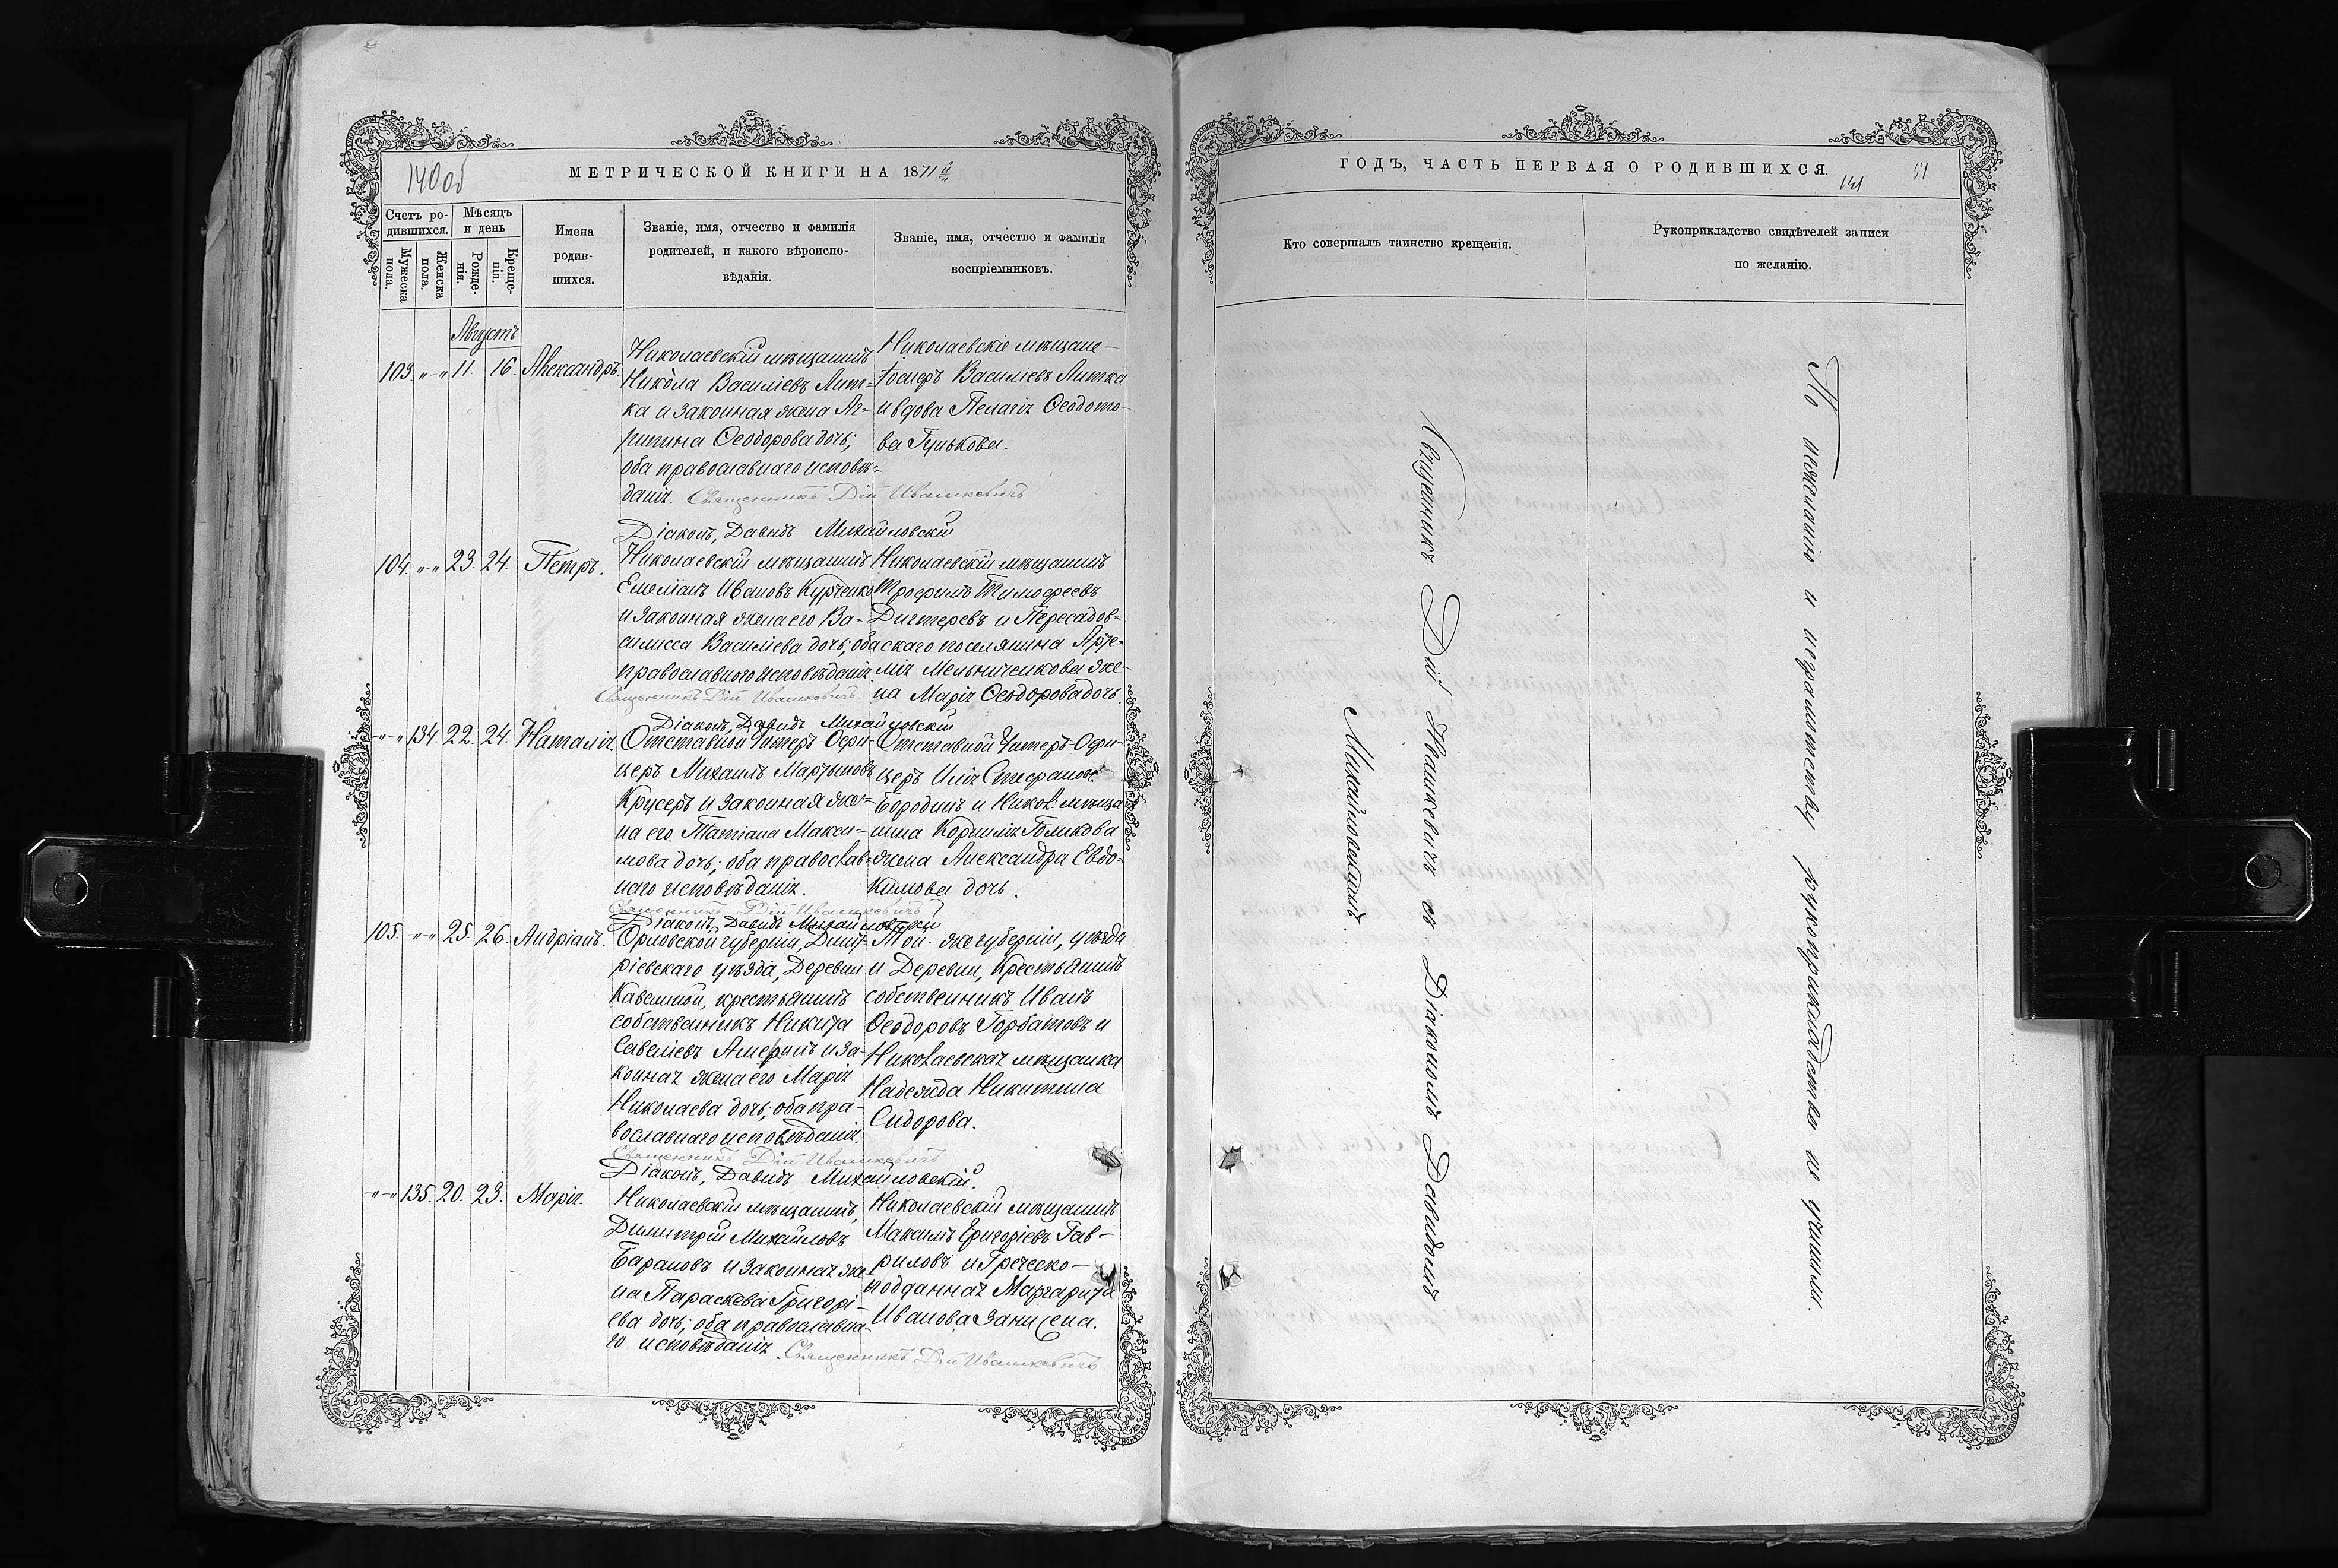 140об
МЕТРИЧЕСКОЙ КНИГИ НА 1871й
Счетъ ро-
дившихся.
Мужеска
пола.
Женска
пола.
Мѣсяцъ
и день
Рожде-
нія.
Креще-
нія.
Имена
родив-
шихся.
Званіе, имя, отчество и фамилія
родителей, и какого вѣроиспо-
вѣданія.
Званіе, имя, отчество и фамилія
воспріемниковъ.
Августъ
103. „ - „ 11. 16. Александръ.
Николаевскій мѣщанинъ
Никола Василіевъ Лит-
ка и законная жена Аг-
рипина Ѳеодорова дочь;
оба православнаго исповѣ-
данія. Священникъ Дій Ивашкевичъ
Діаконъ, Давидъ Михайловскій
Николаевскіе мѣщане-
Василіевъ Литка
и вдова Пелагія Ѳеодото-
ва
104. „ - „ 23. 24. Петръ.
Николаевскій мѣщанинъ
Емеліанъ Ивановъ Курченко
и законная жена его Ва-
силисса Василіева дочь; оба
православнаго исповѣданія.
Священникъ Дій Ивашкевичъ.
Діаконъ, Давидъ Михайловскій
Николаевскій мѣщанинъ
Трофимъ Тимофеевъ
Дигтеревъ и Пересадов-
скаго поселянина Арте-
мія Мельниченкова же-
на Марія Ѳеодорова дочь
„ - „ 134. 22. 24. Наталія.
Отставной Унтеръ-Офи-
церъ Михаилъ Мартыновъ
Крусеръ и законная же-
на его Татіана Макси-
мова дочь; оба православ-
наго исповѣданія.
Священникъ Дій Ивашкевичъ
Діаконъ, Давидъ Михайловскій
Отставной Унтеръ-Офи-
церъ Илія Стефановъ
Бородинъ и Никол. мѣща-
нина Корнилія Голикова
жена Александра Евдо-
кимова дочь.
105. „ - „ 25. 26. Андріанъ.
Орловской губерніи, Дмит-
ріевскаго уѣзда, Деревни
крестьянинъ
собственникъ Никита
Савеліевъ и за-
конная жена его Марія
Николаева дочь; оба пра-
вославнаго исповѣданія.
Священникъ Дій Ивашкевичъ
Діаконъ, Давидъ Михайловскій.
Той-же губерніи, уѣзда
и Деревни, Крестьянинъ
собственникъ Иванъ
Ѳеодоровъ Горбатовъ и
Николаевская мѣщанка
Надежда Никитина
Сидорова.
„ - „ 135. 20. 23. Марія.
Николаевскій мѣщанинъ,
Димитрій Михайловъ
Барановъ и законная же-
на Параскева Григорі-
ева дочь; оба православна-
го исповѣданія. Священникъ Дій Ивашкевичъ.
Николаевскій мѣщанинъ
Максимъ Григоріевъ Гав-
риловъ и Греческо-
подданная Маргарита
Иванова
ГОДЪ, ЧАСТЬ ПЕРВАЯ О РОДИВШИХСЯ.
141
51
Кто совершалъ таинство крещенія.
Рукоприкладство свидѣтелей записи
по желанію.
Священникъ Дій Ивашкевичъ съ Діакономъ Давидомъ
Михайловскимъ.
По нежеланію и неграмотству рукоприкладства не учинили.